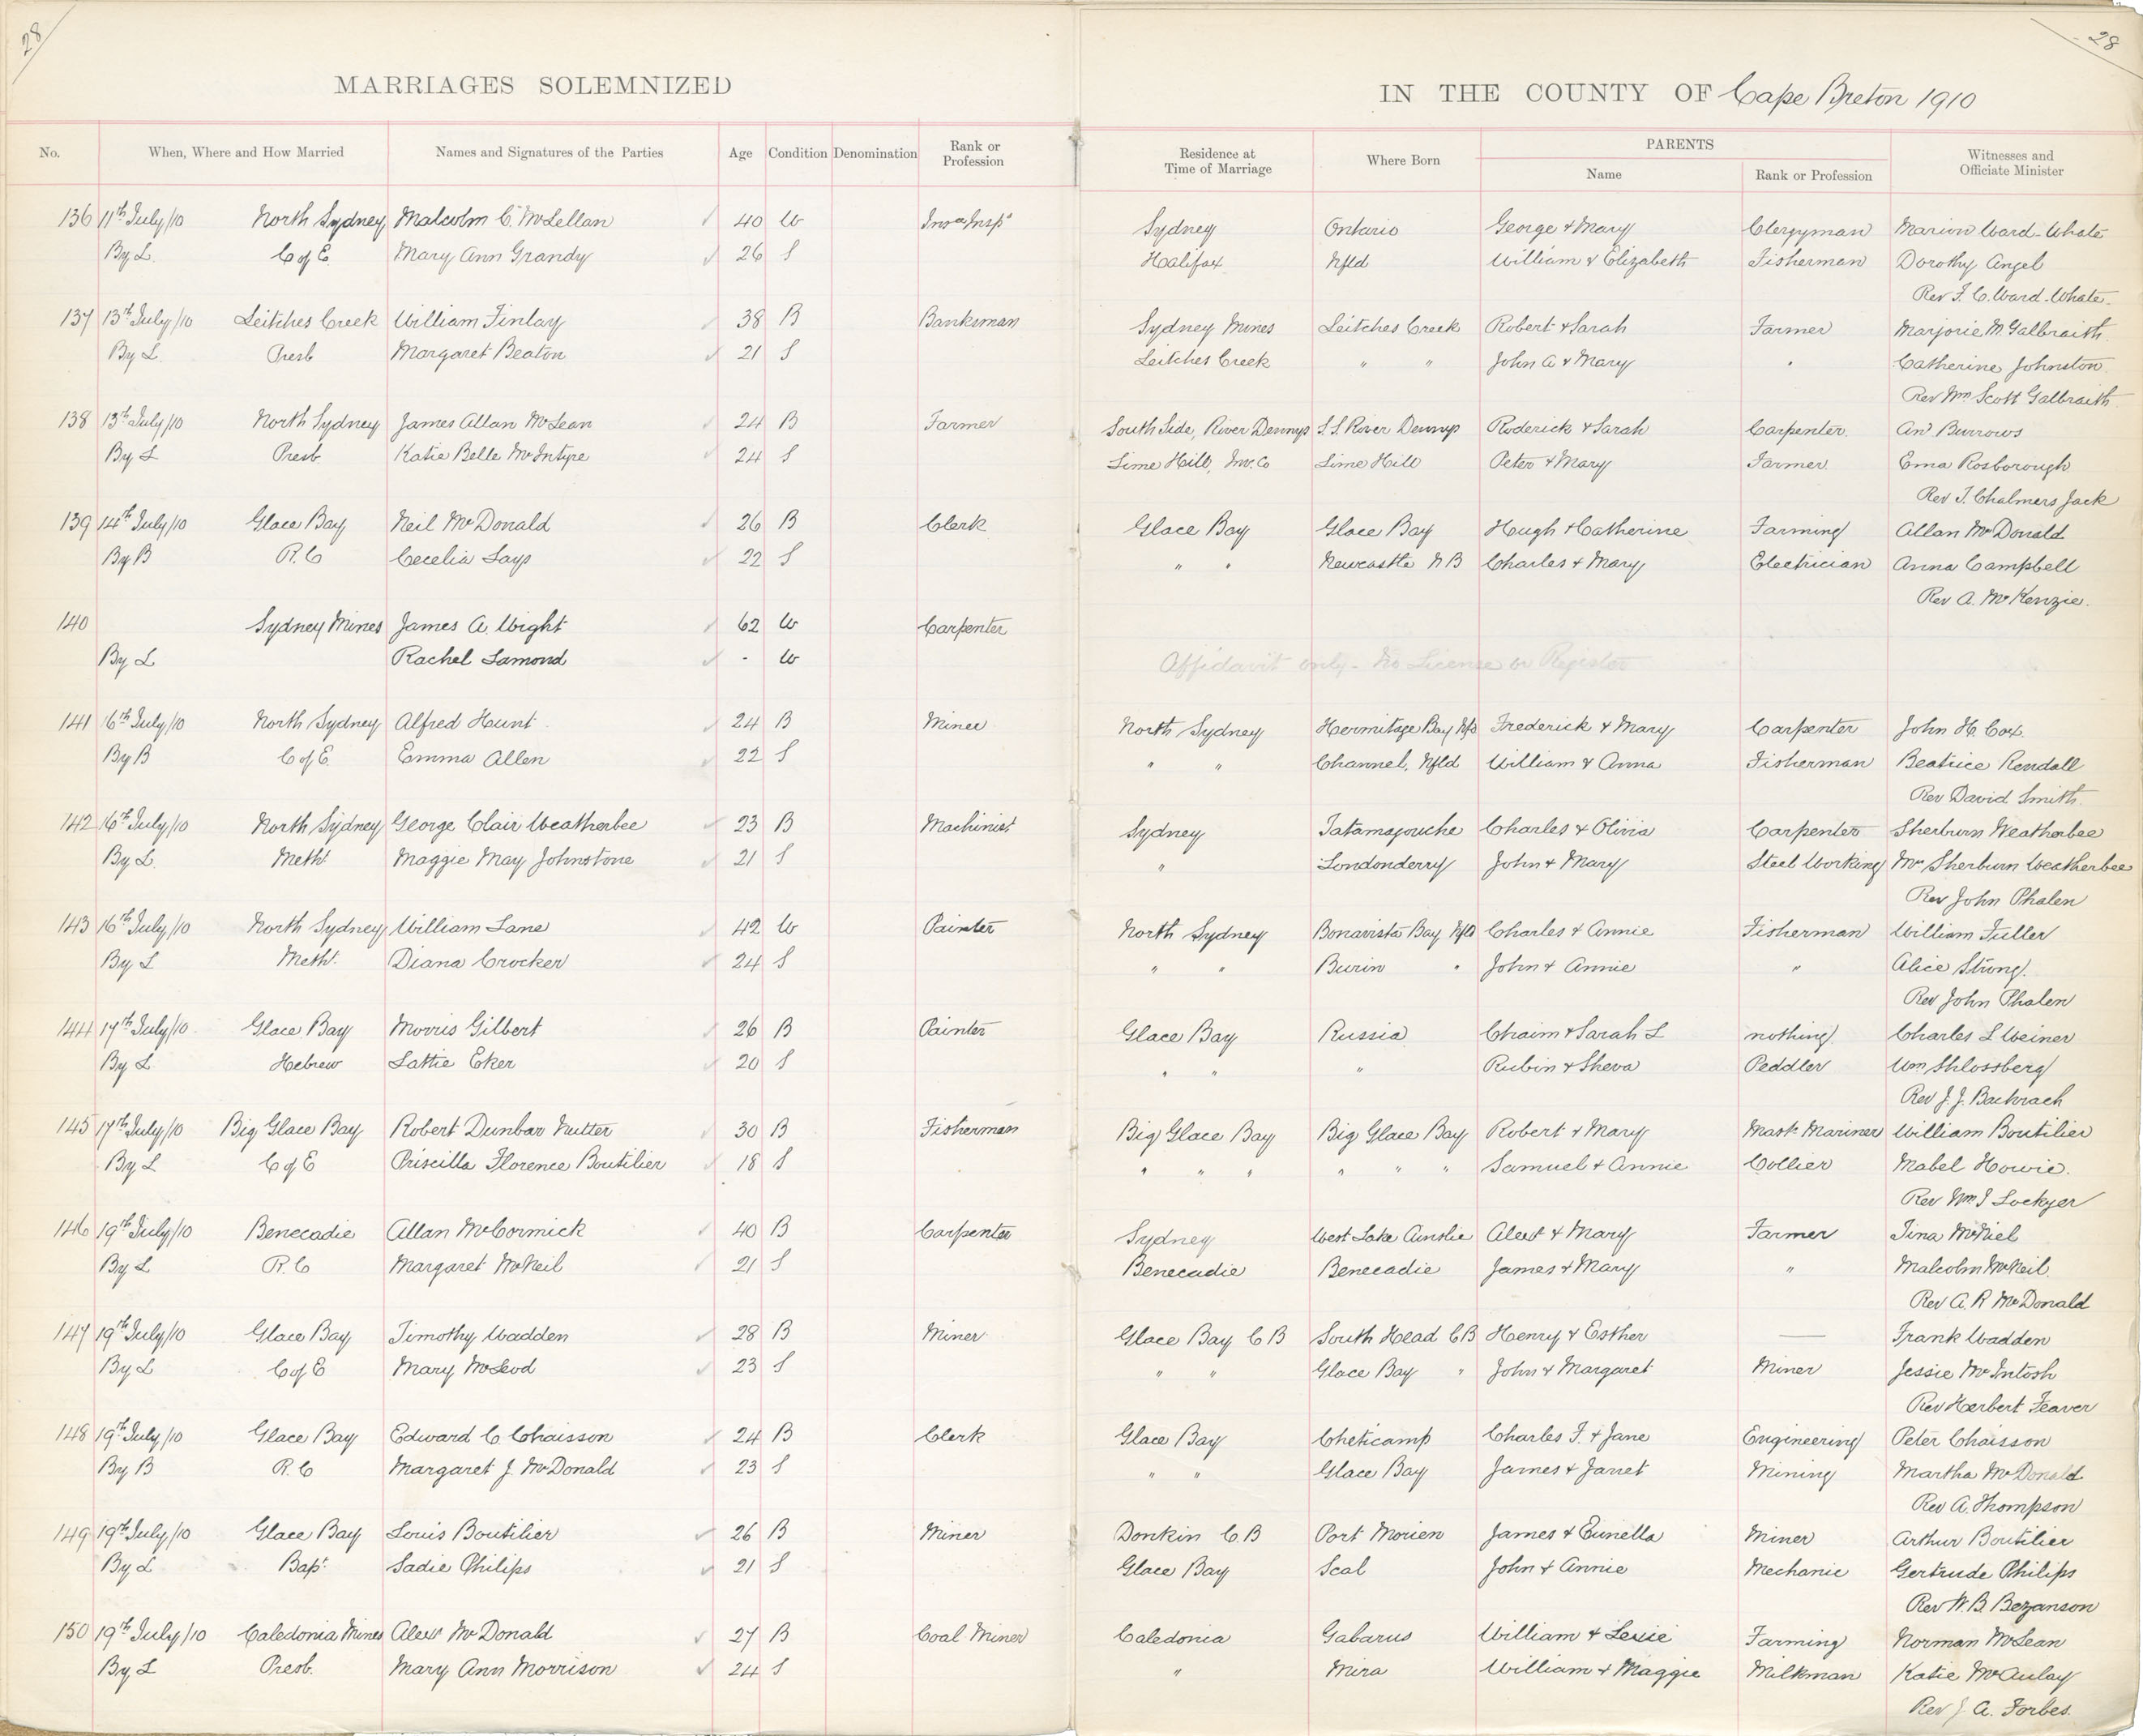 28
28
MARRIAGES SOLEMNIZED
IN THE COUNTY OF Cape Breton 1910
No. When, Where and How Married Names and Signatures of the Parties Age Condition Denomination Rank or Profession Residence at Time of Marriage Where Born PARENTS Name Rank or Profession Witnesses and Officiate Minister
136 11th July/10 North Sydney Malcolm C. McLellan 40 W Insce Inspr Sydney Ontario George & Mary Clergyman Marion Ward-Whate
By L. C of E. Mary Ann Grandy 26 S Halifax Nfld William & Elizabeth Fisherman Dorothy Angel
Rev F. C. Ward-Whate
137 13th July/10 Leitches Creek William Finlay 38 B Banksman Sydney Mines Leitches Creek Robert & Sarah Farmer Marjorie M Galbraith
By L. Presb Margaret Beaton 21 S Leitches Creek " " John A & Mary " Catherine Johnston
Rev Wm Scott Galbraith
138 13th July/10 North Sydney James Allan McLean 24 B Farmer South Side, River Dennys S.S. River Dennys Roderick & Sarah Carpenter And Burrows
By L Presb. Katie Belle McIntyre 24 S Lime Hill, Inv. Co Lime Hill Peter & Mary Farmer Ema Rosborough
Rev T. Chalmers Jack
139 14th July/10 Glace Bay Neil McDonald 26 B Clerk Glace Bay Glace Bay Hugh & Catherine Farming Allan McDonald
By B R.C Cecelia Lays 22 S " " Newcastle N B Charles & Mary Electrician Anna Campbell
Rev A. McKenzie.
140 Sydney Mines James A. Wight 62 W Carpenter
By L Rachel Lamond - W Affidavit only - No License or Register
141 16th July/10 North Sydney Alfred Hunt 24 B Miner North Sydney Hermitage Bay Nfd Frederick & Mary Carpenter John H. Cox
By B C of E. Emma Allen 22 S " " Channel, Nfld William & Anna Fisherman Beatrice Rendall
Rev David Smith
142 16th July/10 North Sydney George Clair Weatherbee 23 B Machinist Sydney Tatamagouche Charles & Olivia Carpenter Sherburn Weatherbee
By L. Metht Maggie May Johnstone 21 S " Londonderry John & Mary Steel Working Mrs Sherburn Weatherbee
Rev John Phalen
143 16th July/10 North Sydney William Lane 42 W Painter North Sydney Bonavista Bay Nfld Charles & Annie Fisherman William Fuller
By L Metht. Diana Crocker 24 S " " Burin " John & Annie " Alice Strong.
Rev John Phalen
144 17th July/10 Glace Bay Morris Gilbert 26 B Painter Glace Bay Russia Chaim & Sarah L nothing Charles L Weiner
By L Hebrew Lattie Eker 20 S " " " Rubin & Sheva Peddler Wm Shlossberg
Rev J. J. Bachrach
145 17th July/10 Big Glace Bay Robert Dunbar Nutter 30 B Fisherman Big Glace Bay Big Glace Bay Robert & Mary Mast Mariner William Boutilier
By L C of E Priscilla Florence Boutilier 18 S " " " " " " Samuel & Annie Collier Mabel Howie.
Rev Wm J Lockyer
146 19th July/10 Benecadie Allan McCormick 40 B Carpenter Sydney West Lake Ainslie Alext & Mary Farmer Tina McNiel
By L R.C Margaret McNeil 21 S Benecadie Benecadie James & Mary " Malcolm McNeil
Rev A. R McDonald
147 19th July/10 Glace Bay Timothy Wadden 28 B Miner Glace Bay C B South Head C B Henry & Esther — Frank Wadden
By L C of E Mary McLeod 23 S " " Glace Bay " John & Margaret Miner Jessie McIntosh
Rev Herbert Feaver
148 19th July/10 Glace Bay Edward C. Chaisson 24 B Clerk Glace Bay Cheticamp Charles F. & Jane Engineering Peter Chaisson
By B R.C Margaret J. McDonald 23 S " " Glace Bay James & Janet Mining Martha McDonald
Rev A. Thompson
149 19th July/10 Glace Bay Louis Boutilier 26 B Miner Donkin C B Port Morien James & Eunella Miner Arthur Boutilier
By L Bapt. Sadie Philips 21 S Glace Bay Scal John & Annie Mechanic Gertrude Philips
Rev W. B. Bezanson
150 19th July/10 Caledonia Mines Alexr McDonald 27 B Coal Miner Caledonia Gabarus William & Lexie Farming Norman McLean
By L Presb. Mary Ann Morrison 24 S " Mira William & Maggie Milkman Katie McAulay
Rev J. A. Forbes.